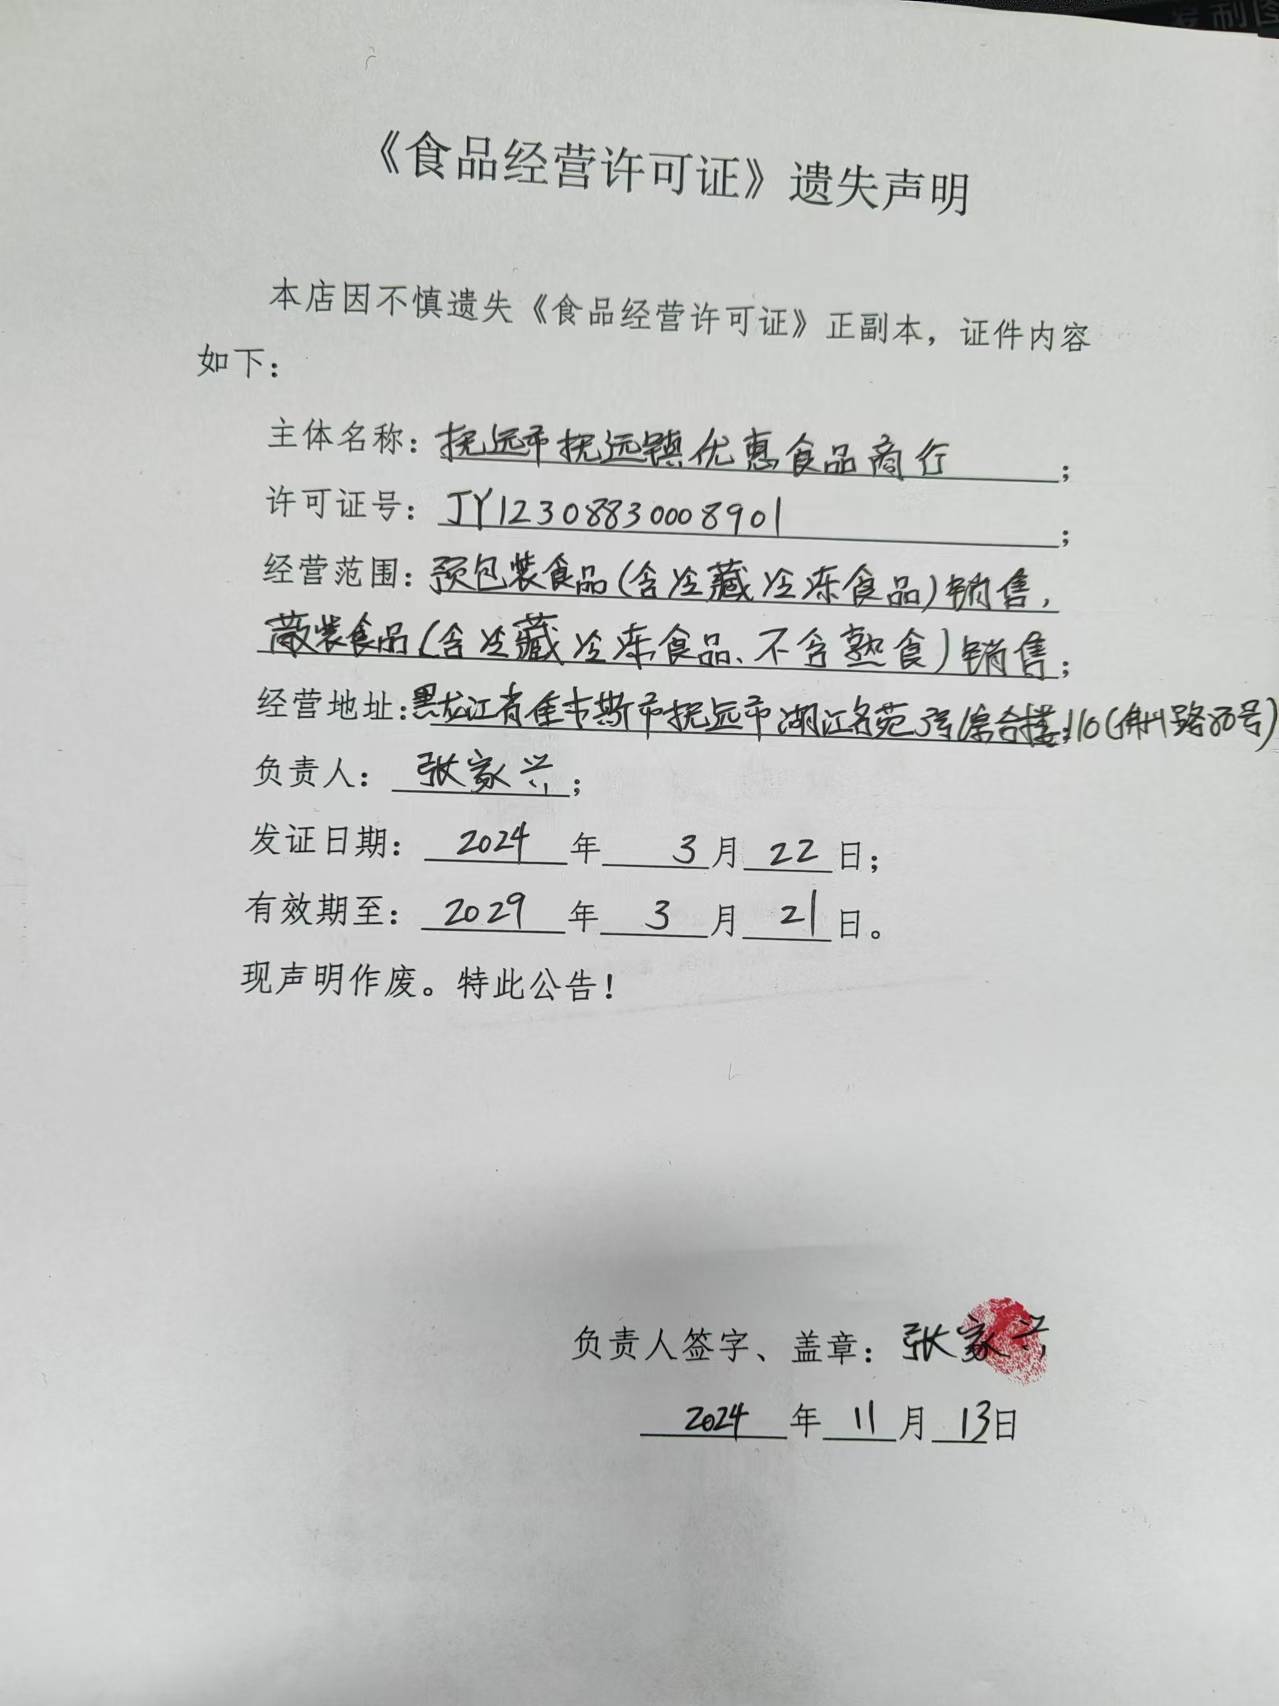 《食品经营许可证》遗失声明
本店因不慎遗失《食品经营许可证》正副本，证件内容
如下：
主体名称：抚远市抚远镇优惠食品商行；
许可证号：JY12308830008901；
经营范围：预包装食品(含冷藏冷冻食品)销售，
散装食品(含冷藏冷冻食品、不含熟食)销售；
经营地址：黑龙江省佳木斯市抚远市湖江名苑 综合楼110( 路88号)
负责人：张家兴；
发证日期：2024年3月22日；
有效期至：2029年3月21日。
现声明作废。特此公告！
负责人签字、盖章：张家兴
2024年11月13日